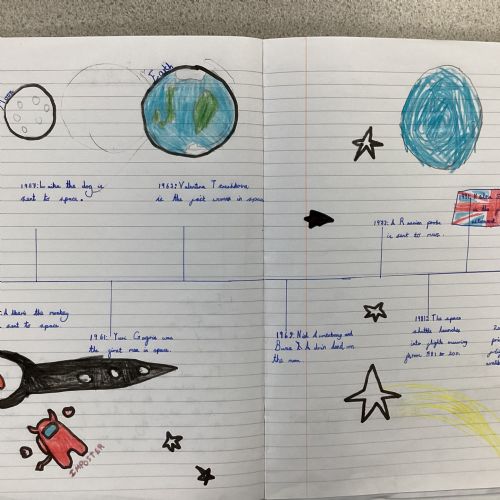 Moon
Earth
1957: Laika the dog is
sent to space.
1963: Valentina Tereshkova
is the first woman in space
is sent to space.
1961: Yuri Gagrin was
the first man in space.
IMPOSTER
1971: A Russian probe
is sent to mars.
1991: Helen
is the first
astronaut
1969: Neil Armstrong and
Buzz Aldrin land on
the moon.
1981: The space
shuttle launches
into flights running
from 1981 to 2011.